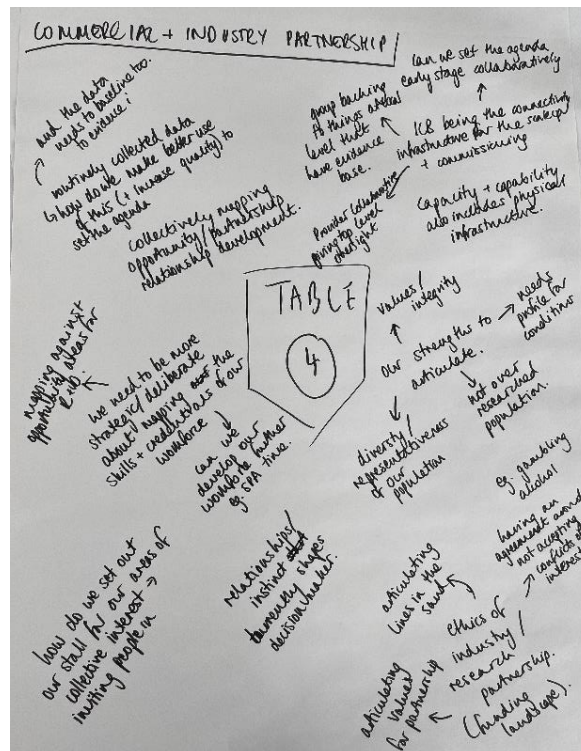 COMMERCIAL + INDUSTRY PARTNERSHIP
and the data
needs to baseline too.
to evidence
routinely collected data
↳ how do we make better use
of this (+ increase quality) to
set the agenda
collectively mapping
opportunity/partnership
relationship development.
group backing
things at
level that
have evidence
base.
can we set the agenda
early stage collaboratively
ICB being the connectivity
infrastructure for the
+ commissioning
Provider collaborative
giving top level
oversight
capacity + capability
also includes physical
infrastructure.
TABLE
4
values/
integrity
our strengths to
articulate.
needs
profile for
conditions
not over
researched
population.
diversity/
representativeness
of our
population
mapping against
opportunity areas for
R+D.
we need to be more
strategic/deliberate
about mapping the
skills + credentials of our
workforce
can we
develop our
workforce further
eg. SPA time.
how do we set out
our stall for our areas of
collective interest →
inviting people in
relationships/
instinct
shapes
decision maker.
eg. gambling
alcohol
having an
agreement around
not accepting
conflicts of
interest
articulating
lines in the
sand
ethics of
industry/
research
partnership.
(funding
landscape).
articulating
values
for partnership